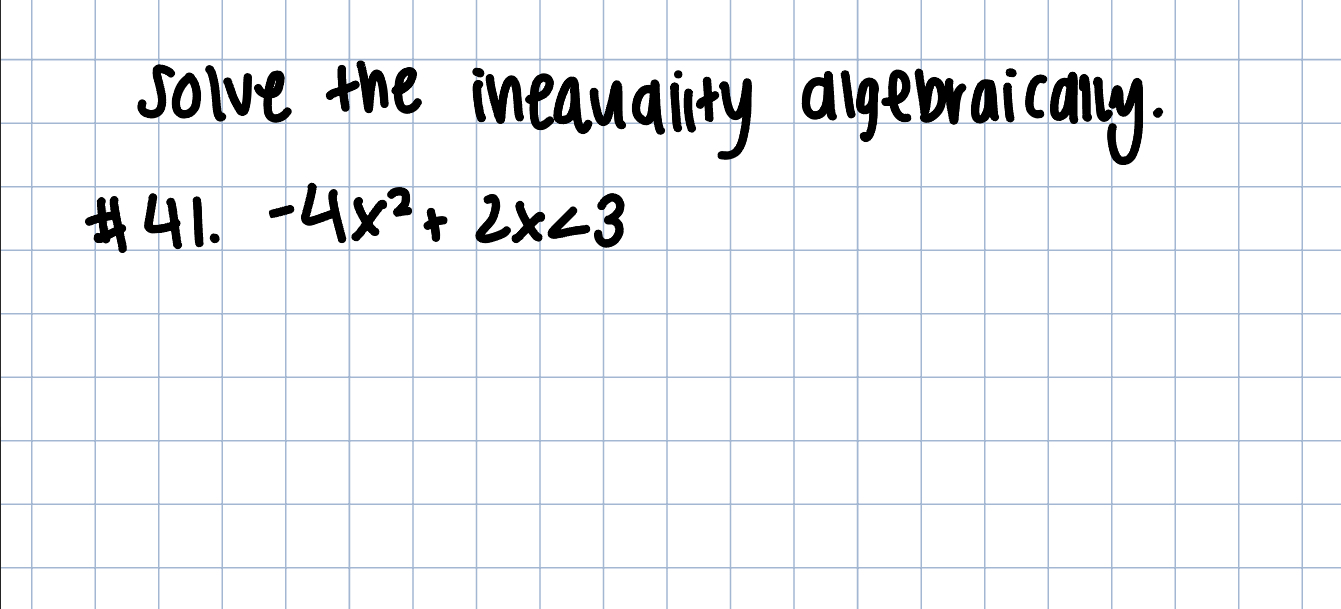 Solve the inequality algebraically.
#41. -4x²+ 2x<3